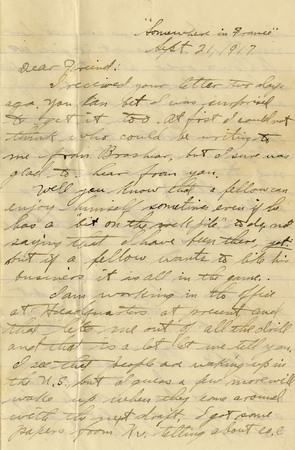 "Somewhere in France"
Sept. 21, 1917
Dear Friend:
I received your letter two days
ago. You can bet I was surprised
to get it too. At first I could not
think who could be writing to
me from Brashear, but I sure was
glad to hear from you.
Well you know that a fellow can
enjoy himself sometime even if he
has a "bit on the rock pile" to do, not
saying that I have been there, yet.
but if a fellow wants to his
business it is all in the game.
I am working in the Office
at Headquarters at present and
that lets me out of all the drill
and that is a lot let me tell you.
I see that people are waking up in
the U.S. but I guess a few more will
wake up when they come around
with the next draft. I got some
papers from Ky. telling about